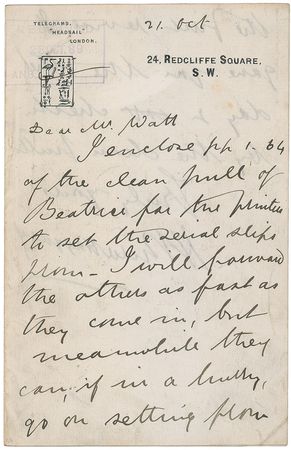 21. Oct
TELEGRAMS,
"HEADSAIL"
LONDON.
24, REDCLIFFE SQUARE,
S.W.
Dear Mr Watt
I enclose pp 1-64
of the clean pull of
Beatrice for the printers
to set the serial slips
from - I will forward
the others as fast as
they come in, but
meanwhile they
can, if in a hurry,
go on setting from